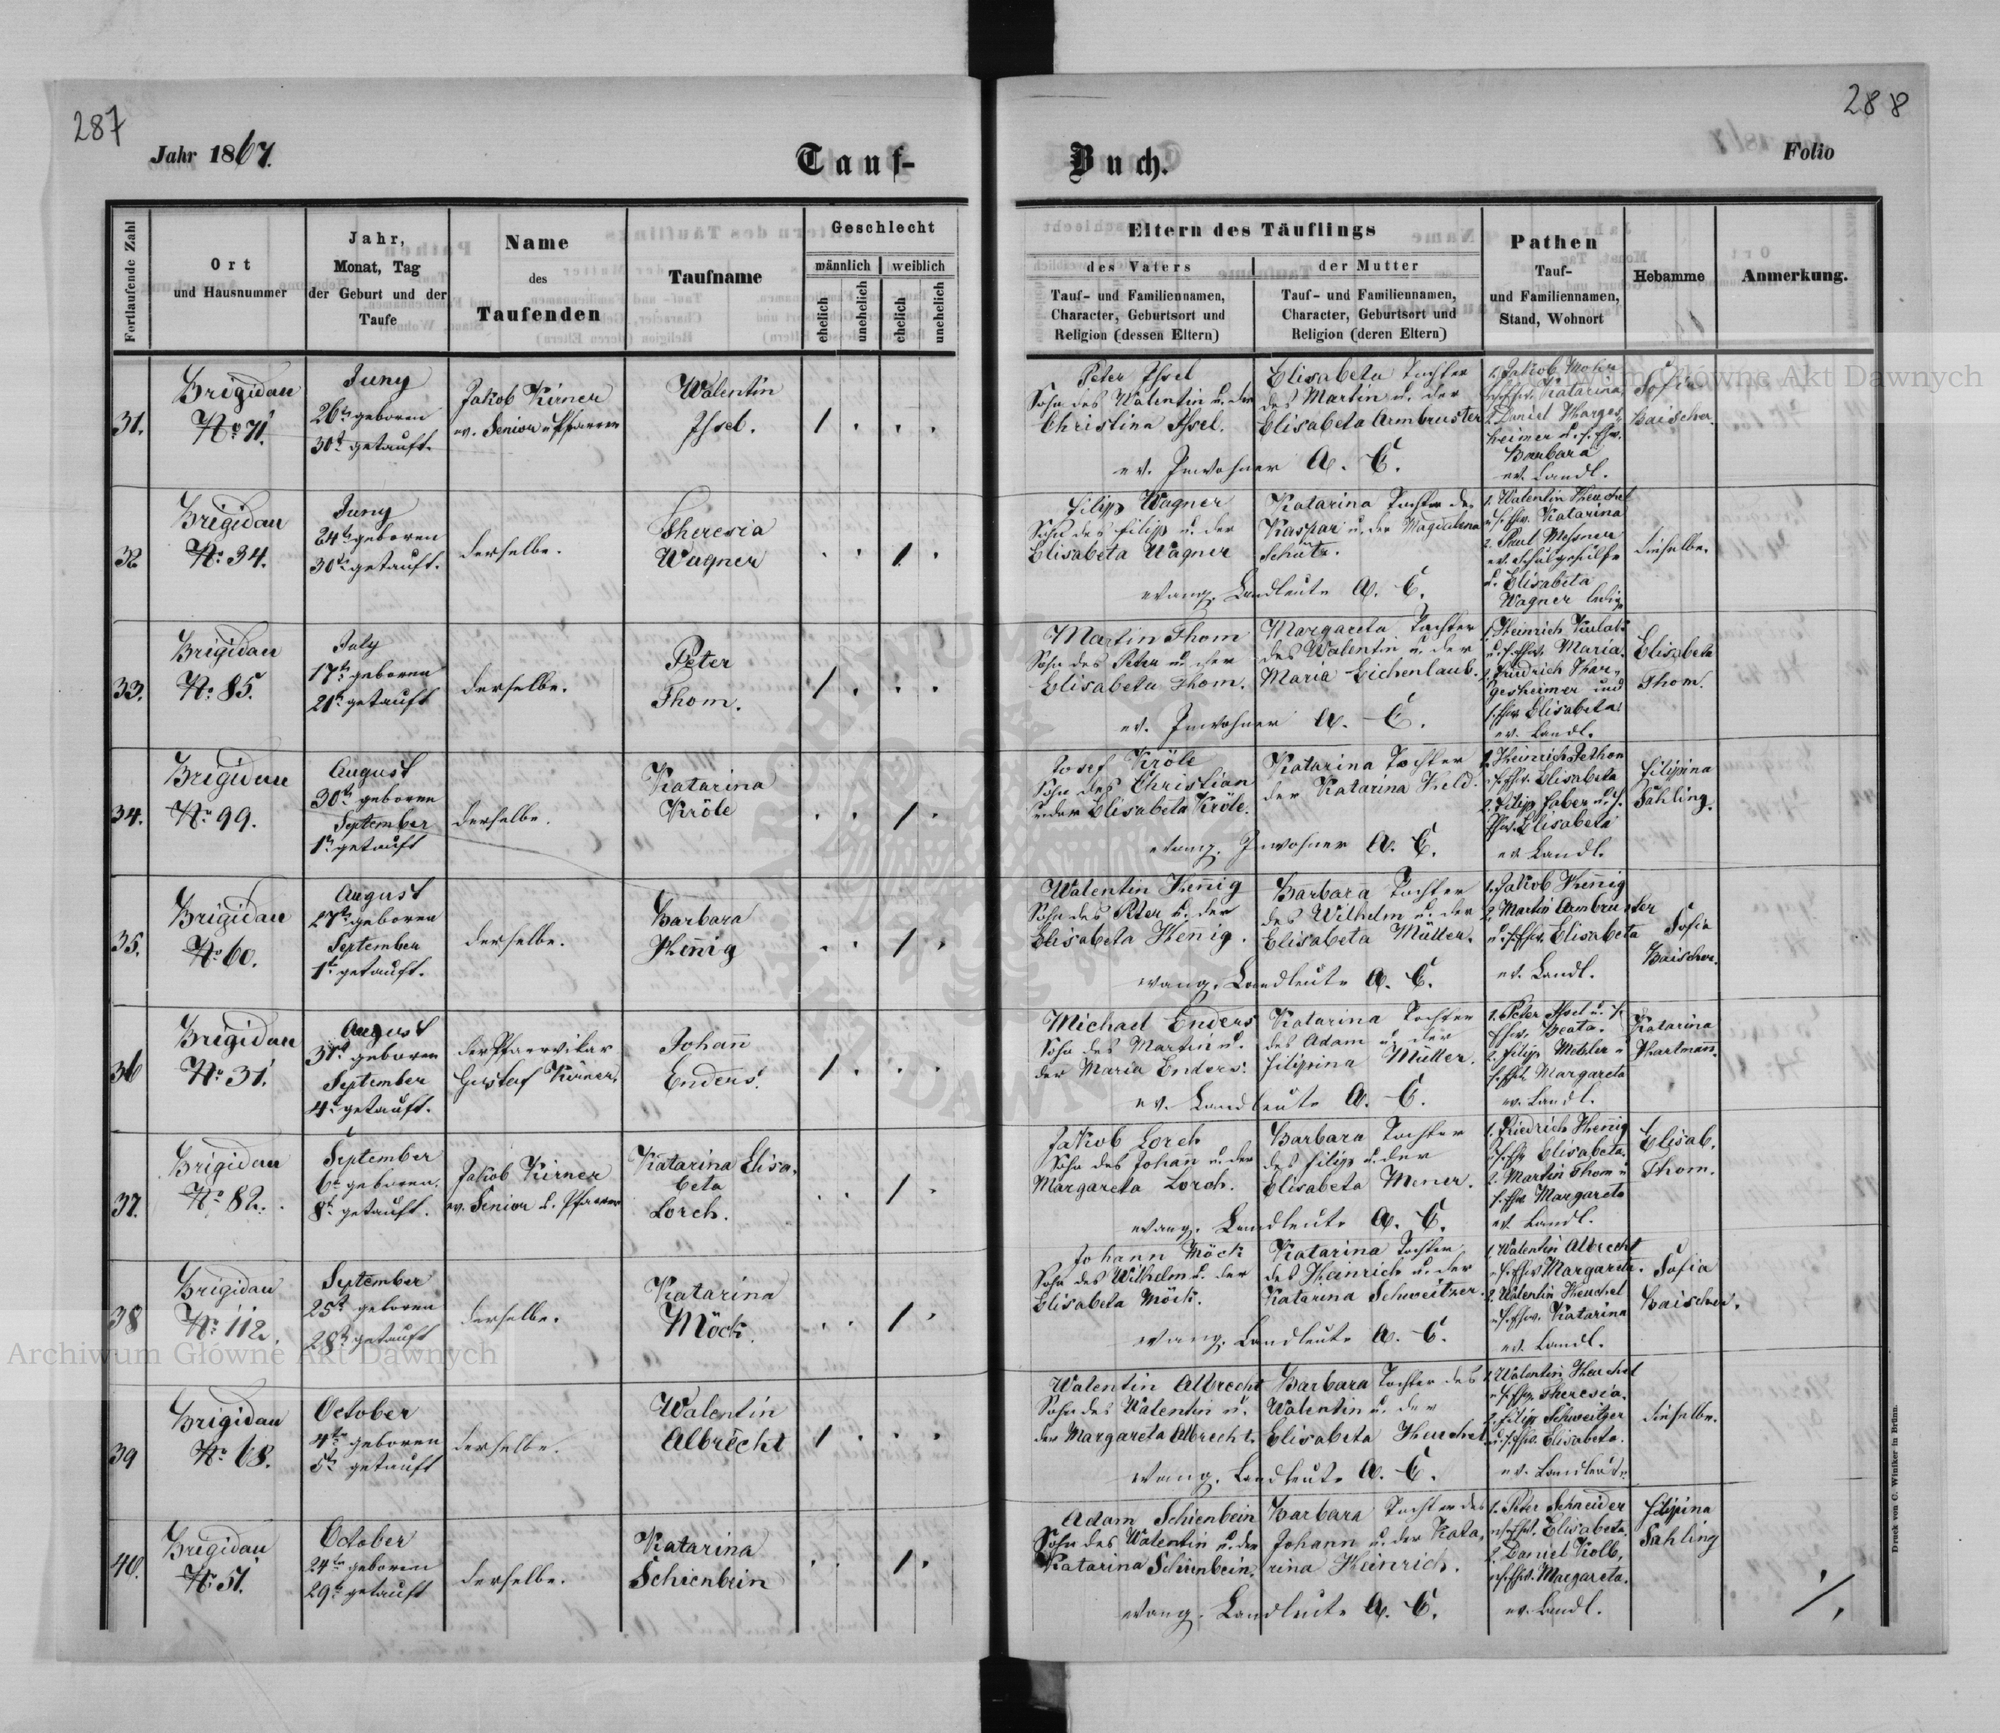 287
288
Jahr 1867.
Tauf-
Buch.
Folio
Fortlaufende Zahl
Ort
und Hausnummer
Jahr,
Monat, Tag
der Geburt und der
Taufe
Name
des
Taufenden
Taufname
Geschlecht
männlich
weiblich
ehelich
unehelich
ehelich
unehelich
Eltern des Täuflings
des Vaters
Tauf- und Familiennamen,
Character, Geburtsort und
Religion (dessen Eltern)
der Mutter
Tauf- und Familiennamen,
Character, Geburtsort und
Religion (deren Eltern)
Pathen
Tauf-
und Familiennamen,
Stand, Wohnort
Hebamme
Anmerkung.
31.
Brigidau
No 71.
Juny
26tn geboren
30t getauft.
Jakob Kirner
ev. Senior u Pfarrer
Walentin
Ihsel.
/ . . .
Peter Ihsel
Sohn des Walentin u. der
Christina Ihsel.
Elisabeta Tochter
des Martin u. der
Elisabeta Armbruster
ev. Inwohner A. C.
1. Jakob
Katarina,
2. Daniel Harges
heimer u. s. Ehw.
Barbara
ev. Landl.
Sofia
Baischer.
32
Brigidau
No 34.
Juny
24tn geboren
30tn getauft.
derselbe.
Theresia
Wagner
. . / .
Filip Wagner
Sohn des Filip u. der
Elisabeta Wagner
Katarina Tochter des
Kaspar u. der Magdalena
Schütz.
evang. Landleute A. C.
1. Walentin Heuchel
u. s. Ehw. Katarina
2. Karl Messner
ev. Schulgehülfe
u. Elisabeta
Wagner ledig
dieselbe.
33.
Brigidau
No 85.
July
17tn geboren
21tn getauft
derselbe.
Peter
Thom.
/ . . .
Martin Thom
Sohn des Peter u. der
Elisabeta Thom.
Margareta Tochter
des Walentin u. der
Maria Eichenlaub.
ev. Inwohner A. C.
1. Heinrich
u. s. Ehw. Maria.
2. Friedrich Har-
gesheimer und
s. Ehw. Elisabeta.
ev. Landl.
Elisabeta
Thom.
34.
Brigidau
No 99.
August
30tn geboren
September
1tn getauft
derselbe.
Katarina
Kröle
. . / .
Josef Kröle
Sohn des Christian
u. der Elisabeta Kröle.
Katarina Tochter
der Katarina Held.
evang. Inwohner A. C.
1. Heinrich
s. Ehw. Elisabeta
2. Filip Faber u. s.
Ehw. Elisabeta
ev Landl.
Filipina
Sahling.
35.
Brigidau
No 60.
August
27tn geboren
September
1tn getauft.
derselbe.
Barbara
Henig
. . / .
Walentin Henig
Sohn des Peter u. der
Elisabeta Henig.
Barbara Tochter
des Wilhelm u. der
Elisabeta Müller.
evang. Landleute A. C.
1. Jakob Henig
2. Martin Armbruster
u. s. Ehw. Elisabeta
ev. Landl.
Sofia
Baischer.
36
Brigidau
No 31.
August
31t geboren
September
4t getauft.
der Pfarrvikar
Gustaf Kirner.
Johan
Enders.
/ . . .
Michael Enders
Sohn des Martin u.
der Maria Enders.
Katarina Tochter
des Adam u. der
Filipina Müller.
ev. Landleute A. C.
1. Peter Ihsel u. s.
Ehw. Beata.
2. Filip Metzler u
s. Ehw. Margareta
ev. Landl.
Katarina
Hartman.
37.
Brigidau
No 82.
September
6tn geboren.
8tn getauft.
Jakob Kirner
ev. Senior u. Pfarrer
Katarina Elisa-
beta
Lorch.
. . / .
Jakob Lorch
Sohn des Johan u. der
Margareta Lorch.
Barbara Tochter
des Filip u. der
Elisabeta
evang. Landleute A. C.
1. Friedrich Henig
u. s. Ehw. Elisabeta.
2. Martin Thom u
s. Ehw. Margareta
ev. Landl.
Elisab.
Thom.
38
Brigidau
No 112.
September
25tn geboren
28tn getauft
derselbe.
Katarina
Möck.
. . / .
Johann Möck
Sohn des Wilhelm u. der
Elisabeta Möck.
Katarina Tochter
des Heinrich u. der
Katarina Schweitzer.
evang. Landleute A. C.
1. Walentin Albrecht
u. s. Ehw. Margareta.
2. Walentin Heuchel
u. s. Ehw. Katarina
ev. Landl.
Sofia
Baischer.
39
Brigidau
No 68.
October
4tn geboren
5tn getauft
derselbe.
Walentin
Albrecht
/ . . .
Walentin Albrecht
Sohn des Walentin u.
der Margareta Albrecht.
Barbara Tochter des
Walentin u. der
Elisabeta Heuchel
evang. Landleute A. C.
1. Walentin Heuchel
u. s. Ehw. Theresia.
2. Filip Schweitzer
u. s. Ehw. Elisabeta.
ev. Landleute
dieselbe.
40.
Brigidau
No 51.
October
24tn geboren
29tn getauft
derselbe.
Katarina
Schienbein
. . / .
Adam Schienbein
Sohn des Walentin u. der
Katarina Schienbein.
Barbara Tochter des
Johann u. der Kata,
rina Heinrich.
evang. Landleute A. C.
1. Peter Schneider
u. s. Ehw. Elisabeta.
2. Daniel Kolb,
u. s. Ehw. Margareta.
ev. Landl.
Filipina
Sahling
Druck von C. Winiker in Brünn.
Archiwum Główne Akt Dawnych
Archiwum Główne Akt Dawnych